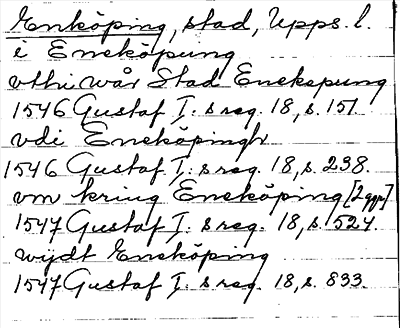 Enköping, stad, Upps. l.
i Eneköpung
vthi wår Stad Enekepung
1546 Gustaf I:s reg. 18, s. 151.
vdi Eneköpingh
1546 Gustaf I:s reg. 18, s. 238.
vm kring Eneköping [2 ggr]
1547 Gustaf I:s reg. 18, s. 524.
wijdt Eneköping
1547 Gustaf I:s reg. 18, s. 833.